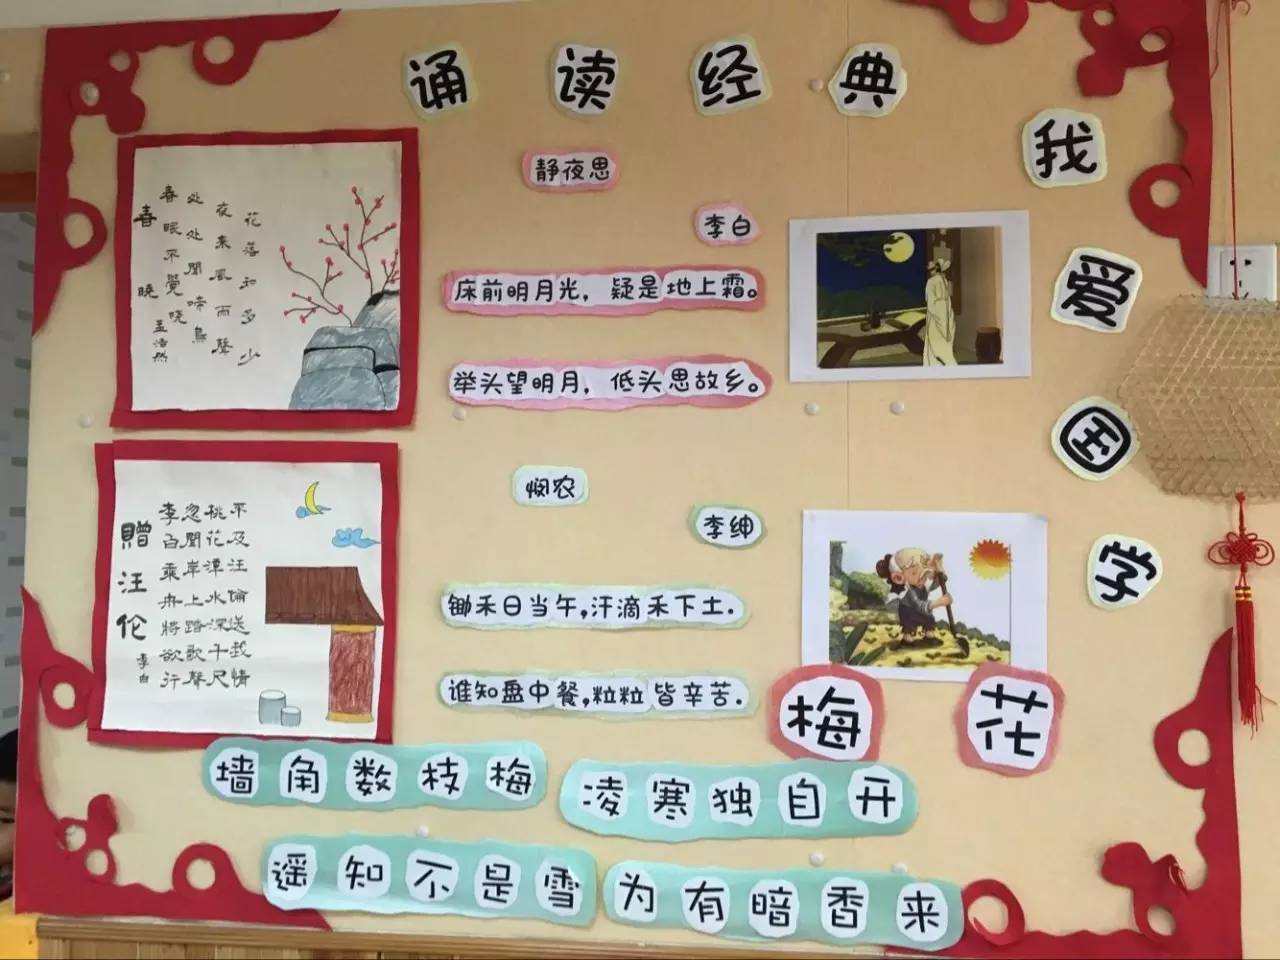 诵读经典
我爱国学
春晓
孟浩然
春眠不覺曉
处处聞啼鳥
夜来風雨聲
花落知多少
贈汪伦
李白
李白乘舟將欲行
忽聞岸上踏歌聲
桃花潭水深千尺
不及汪倫送我情
静夜思
李白
床前明月光，疑是地上霜。
举头望明月，低头思故乡。
悯农
李绅
锄禾日当午,汗滴禾下土.
谁知盘中餐,粒粒皆辛苦.
梅花
墙角数枝梅
凌寒独自开
遥知不是雪
为有暗香来